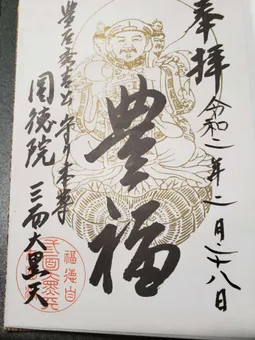 奉拝
令和二年二月二十八日
豊福
豊臣秀吉公守り本尊
圓徳院
三面大黒天
福徳自
三面大黒天